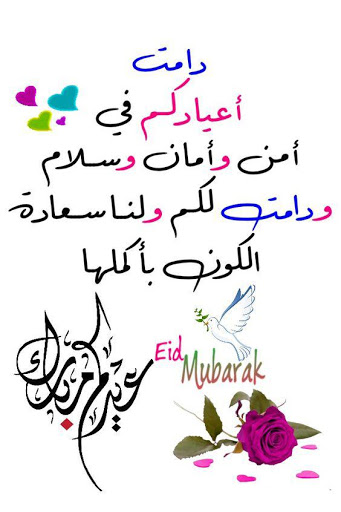 دامت
أعيادكم في
أمن وأمان وسلام
ودامت لكم ولنا سعادة
الكون بأكملها
عيدكم مبارك
Eid
Mubarak